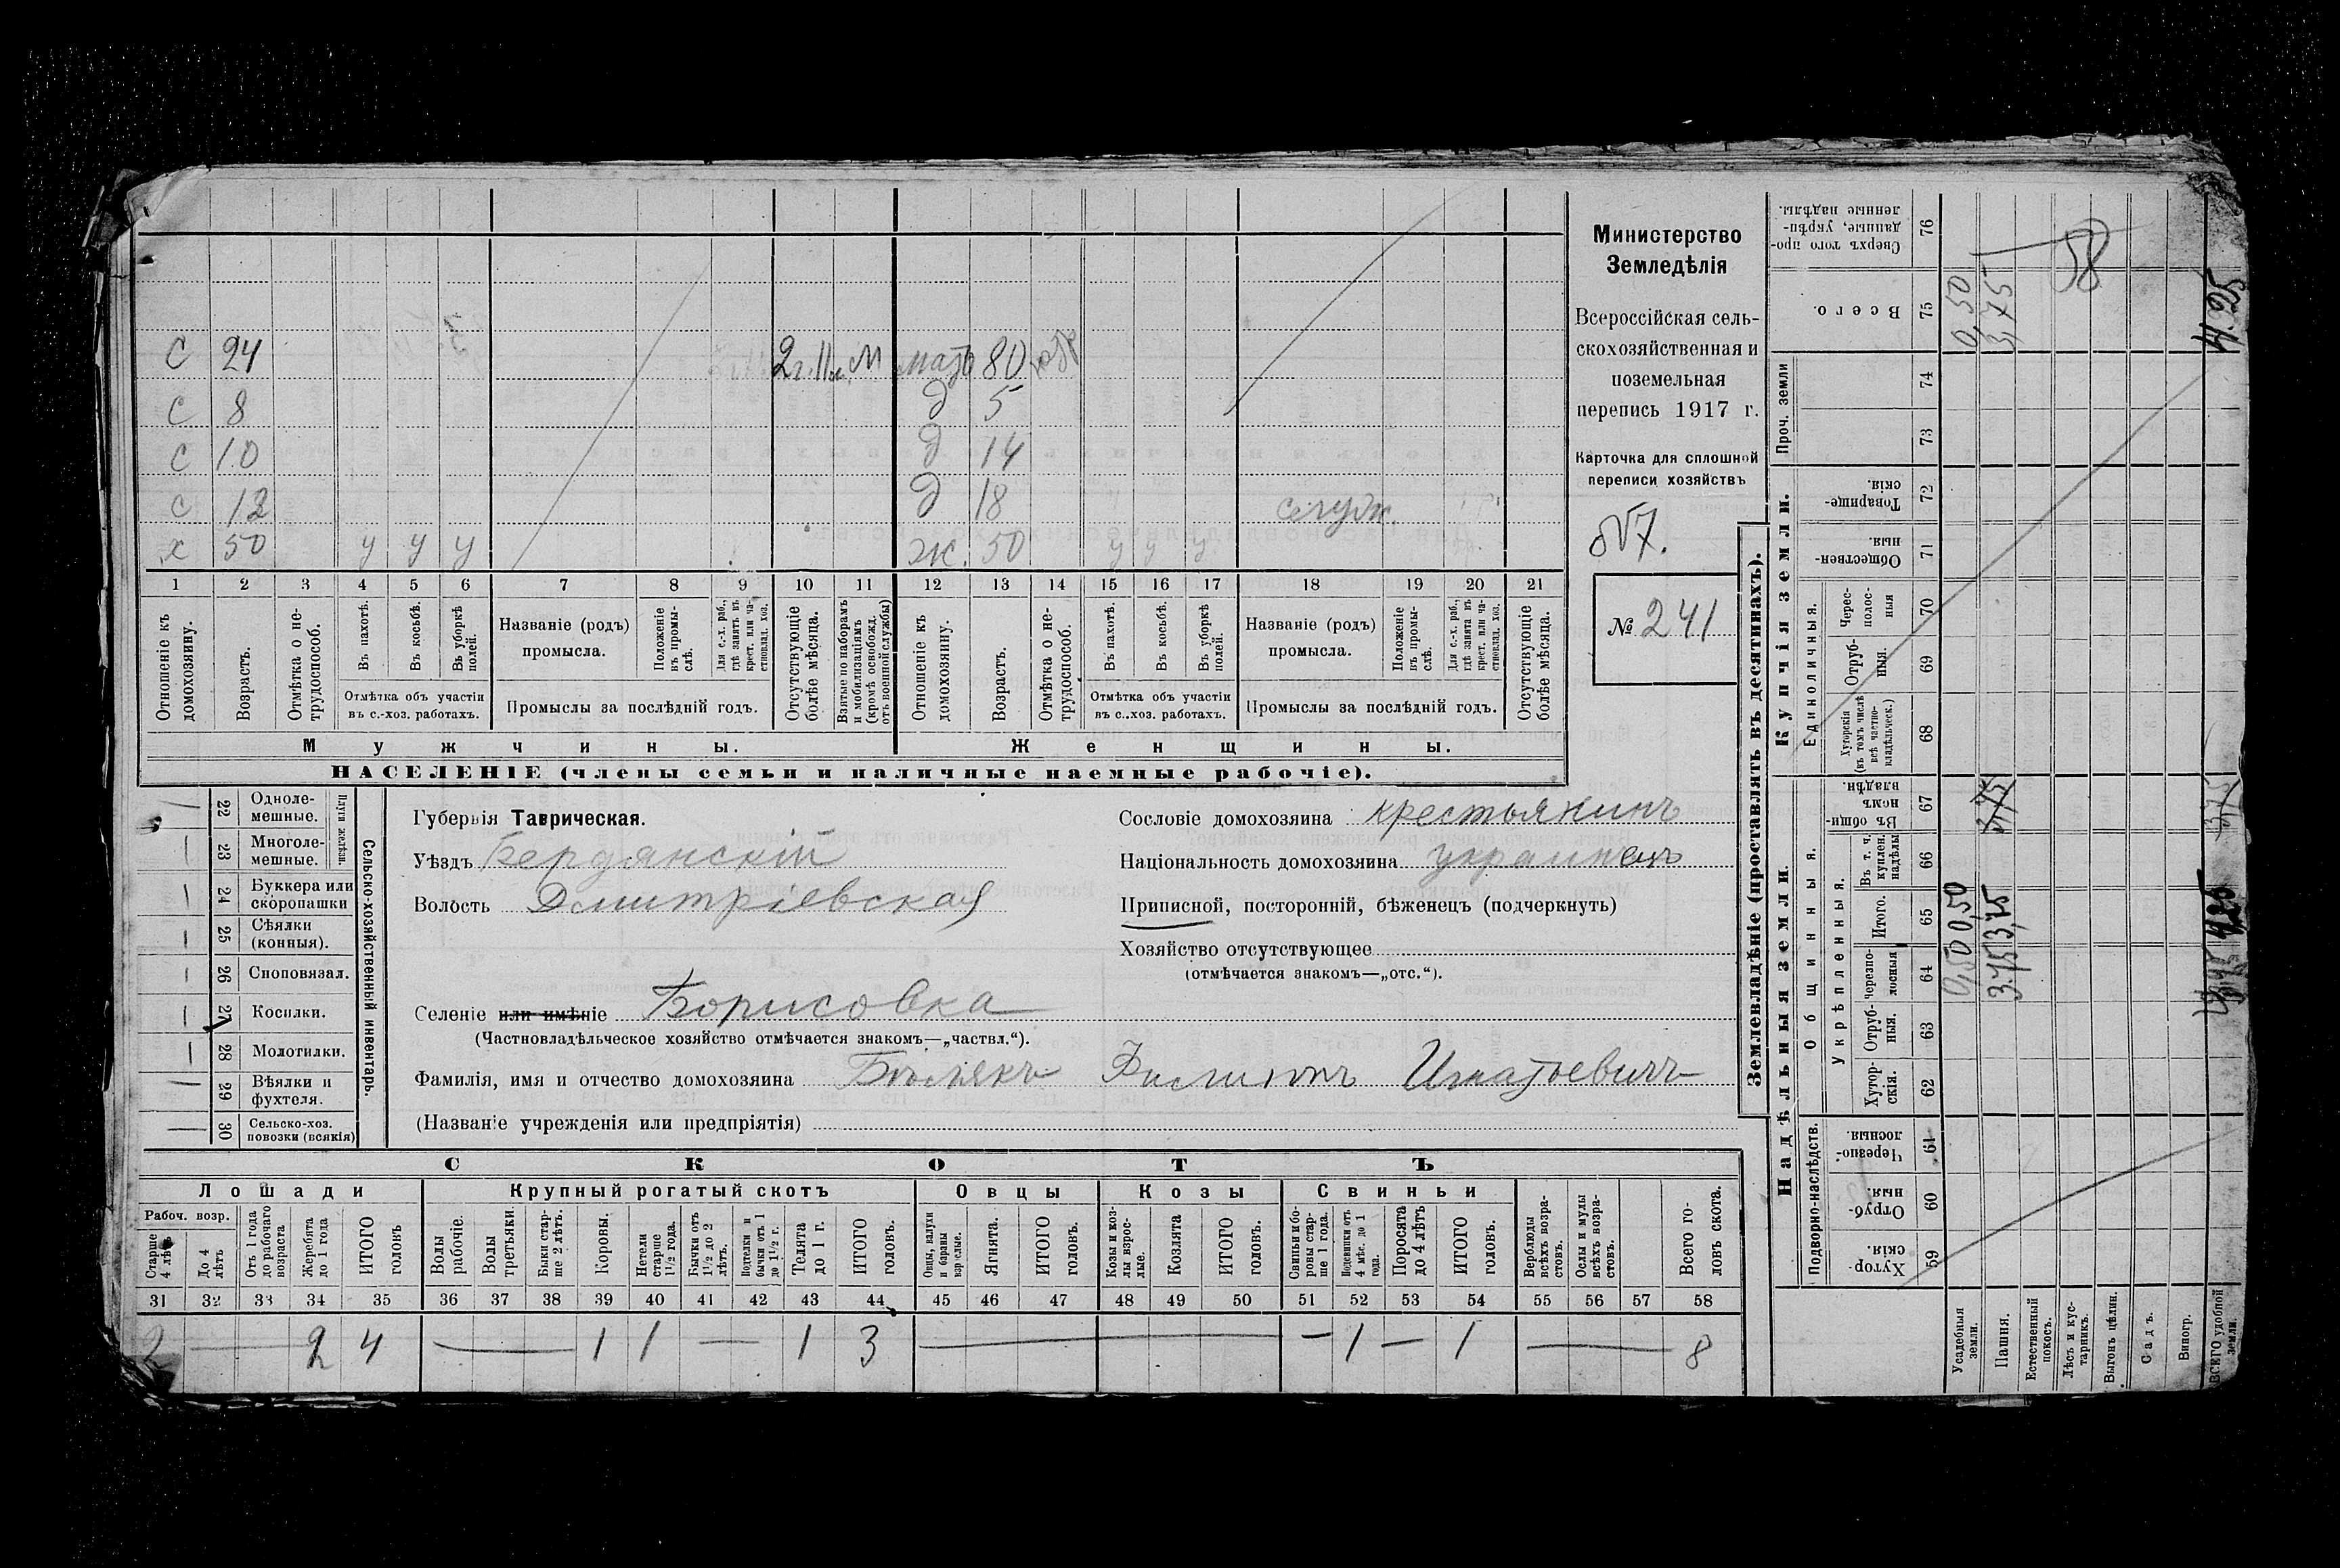 с 24 2г.11м. М мать 80
с 8 д 5
с 10 д 14
с 12 д 18 служ.
х 50 у у у ж. 50 у у у
1 2 3 4 5 6 7 8 9 10 11 12 13 14 15 16 17 18 19 20 21
Отношеніе къ домохозяину.
Возрастъ.
Отмѣтка о не-трудоспособ.
Въ пахотѣ.
Въ косьбѣ.
Въ уборкѣ полей.
Отмѣтка объ участіи
въ с.-хоз. работахъ.
Названіе (родъ)
промысла.
Положеніе въ промы-слѣ.
Для с.-х. раб., гдѣ занятъ въ крест. или ча-стновлад. хоз.
Промыслы за послѣдній годъ.
Отсутствующіе болѣе мѣсяца.
Взятые по наборамъ и мобилизаціямъ (кромѣ освобожд. отъ военной службы)
Отношеніе къ домохозяину.
Возрастъ.
Отмѣтка о не-трудоспособ.
Въ пахотѣ.
Въ косьбѣ.
Въ уборкѣ полей.
Отмѣтка объ участіи
въ с..хоз. работахъ.
Названіе (родъ)
промысла.
Положеніе въ промы-слѣ.
Для с.-х. раб., гдѣ занята въ крест. или ча-стновлад. хоз.
Промыслы за послѣдній годъ.
Отсутствующіе болѣе мѣсяца.
Мужчины.
Женщины.
НАСЕЛЕНІЕ (члены семьи и наличные наемные рабочіе).
Министерство
Земледѣлія
Всероссійская сель-
скохозяйственная и
поземельная
перепись 1917 г.
Карточка для сплошной
переписи хозяйствъ
№ 241
Сельско-хозяйственный инвентарь.
Плуги желѣзн.
22 Одноле-мешные.
23 Многоле-мешные.
24 Буккера или скоропашки
25 Сѣялки (конныя).
26 Сноповязал.
27 Косилки.
28 Молотилки.
29 Вѣялки и фухтеля.
30 Сельско-хоз. повозки (всякія)
Губернія Таврическая.
Уѣздъ Бердянскій
Волость Дмитріевская
Селеніе или имѣніе Борисовка
(Частновладѣльческое хозяйство отмѣчается знакомъ—„частвл.“).
Сословіе домохозяина крестьянинъ
Національность домохозяина украинецъ
Приписной, посторонній, бѣженецъ (подчеркнуть)
Хозяйство отсутствующее
(отмѣчается знакомъ—„отс.“).
Фамилія, имя и отчество домохозяина Филиппъ Игнатьевичъ
(Названіе учрежденія или предпріятія)
СКОТЪ
Лошади
Рабоч. возр.
Старше 4 лѣтъ
До 4 лѣтъ
Отъ 1 года до рабочаго возраста
Жеребята до 1 года
ИТОГО головъ
Крупный рогатый скотъ
Волы рабочіе.
Волы третьяки.
Быки стар-ше 2 лѣтъ.
Коровы.
Нетели старше 1½ года.
Бычки отъ 1½ до 2 лѣтъ.
Подтелки и бычки отъ 1 до 1½ г.
Телята до 1 г.
ИТОГО головъ.
Овцы
Овцы, валухи и бараны взрослые.
Ягнята.
ИТОГО головъ.
Козы
Козы и коз-лы взрос-лые.
Козлята
ИТОГО головъ.
Свиньи
Свиньи и бо-ровы стар-ше 1 года.
Подсвинки отъ 4 мѣс. до 1 года.
Поросята до 4 лѣтъ
ИТОГО головъ.
Верблюды всѣхъ возра-стовъ.
Ослы и мулы всѣхъ возра-стовъ.
Всего го-ловъ скота.
31 32 33 34 35 36 37 38 39 40 41 42 43 44 45 46 47 48 49 50 51 52 53 54 55 56 57 58
2 — 2 4 — 1 1 — 1 3 — — 1 — 1 — 8
Землевладѣніе (проставлять въ десятинахъ).
Надѣльныя земли.
Подворно-наслѣдств.
Хутор-скія. 59
Отруб-ныя 60
Черезпо-лосныя. 61
Общинныя.
Укрѣпленныя.
Хутор-скія. 62
Отруб-ныя. 63
Черезпо-лосныя 64
Итого. 65
Въ т. ч. куплен. надѣлы 66
Въ общи-номъ владѣн. 67
Купчія земли.
Единоличныя.
Хуторскія (въ томъ числѣ всѣ частно-владѣльческ.) 68
Отруб-ныя. 69
Черес-полос-ныя 70
Обществен-ныя. 71
Товарище-скія. 72
Проч. земли
73
74
Всего. 75
Сверхъ того про-данные, укрѣп-ленные надѣлы. 76
Усадебныя земли. 0,50 0,50 0,50
Пашня. 3.75 3,75 3,75 3,75
Естественный покосъ.
Лѣсъ и кус-тарникъ.
Выгонъ цѣлин.
Садъ.
Виногр.
ВСЕГО удобной земли. 4.25
58